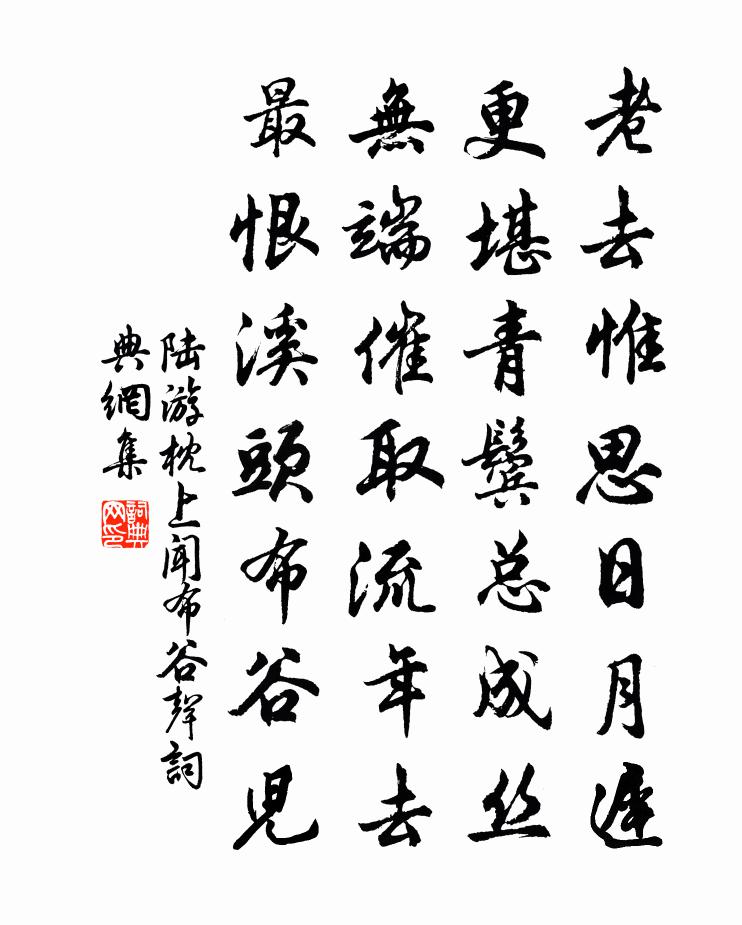 老去惟思日月遲
更堪青鬓总成丝
無端催取流年去
最恨溪頭布谷児
陆游枕上闻布谷聲詞
典網集
詞典网印